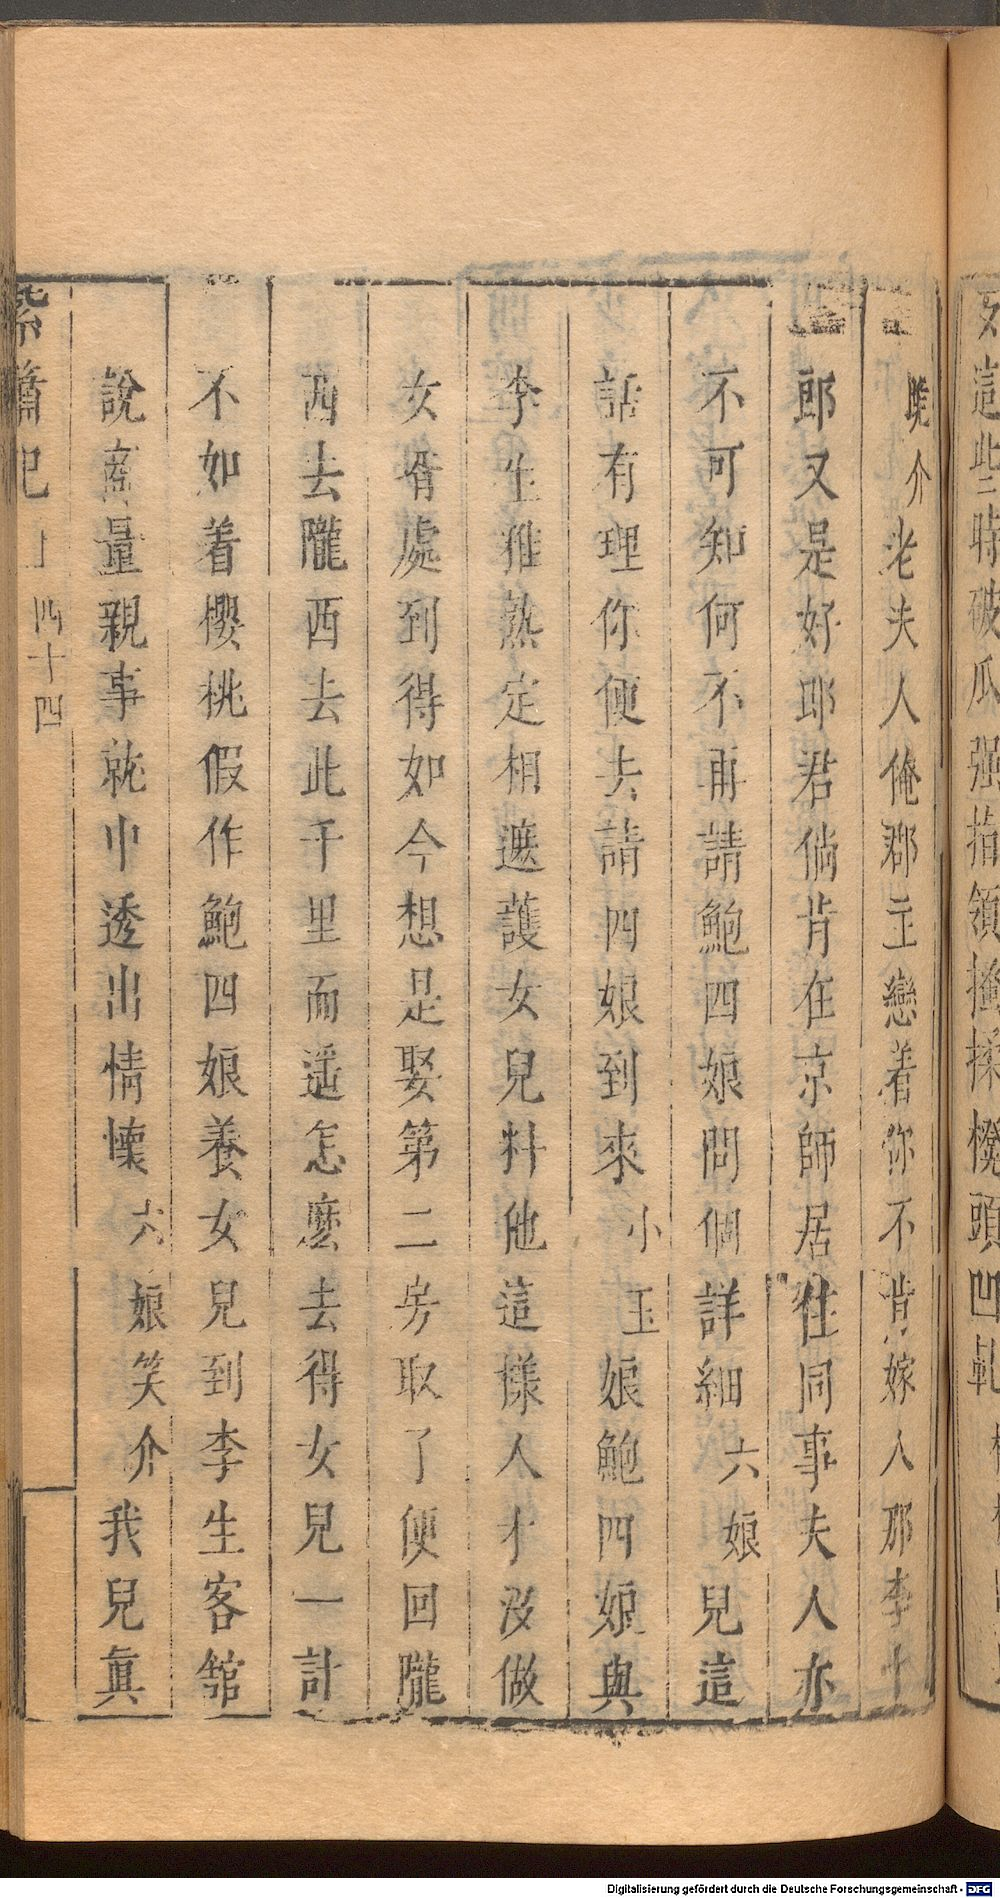 女這些時破瓜强指領搔揉櫈頭凹軋
跪介老夫人俺郡主戀着你不肯嫁人那李十
郎又是好郎君倘肯在京師居住同事夫人亦
不可知何不再請鮑四娘問個詳細六娘兒這
話有理你便去請四娘到來小玉娘鮑四娘與
李生稚熟定相遮護女兒料他這樣人才沒做
女壻處到得如今想是娶第二房取了便回隴
西去隴西去此千里而遥怎麽去得女兒一計
不如着櫻桃假作鮑四娘養女兒到李生客舘
說商量親事就中透出情懷六娘笑介我兒真
紫簫記 上 四十四
Digitalisierung gefördert durch die Deutsche Forschungsgemeinschaft - DFG